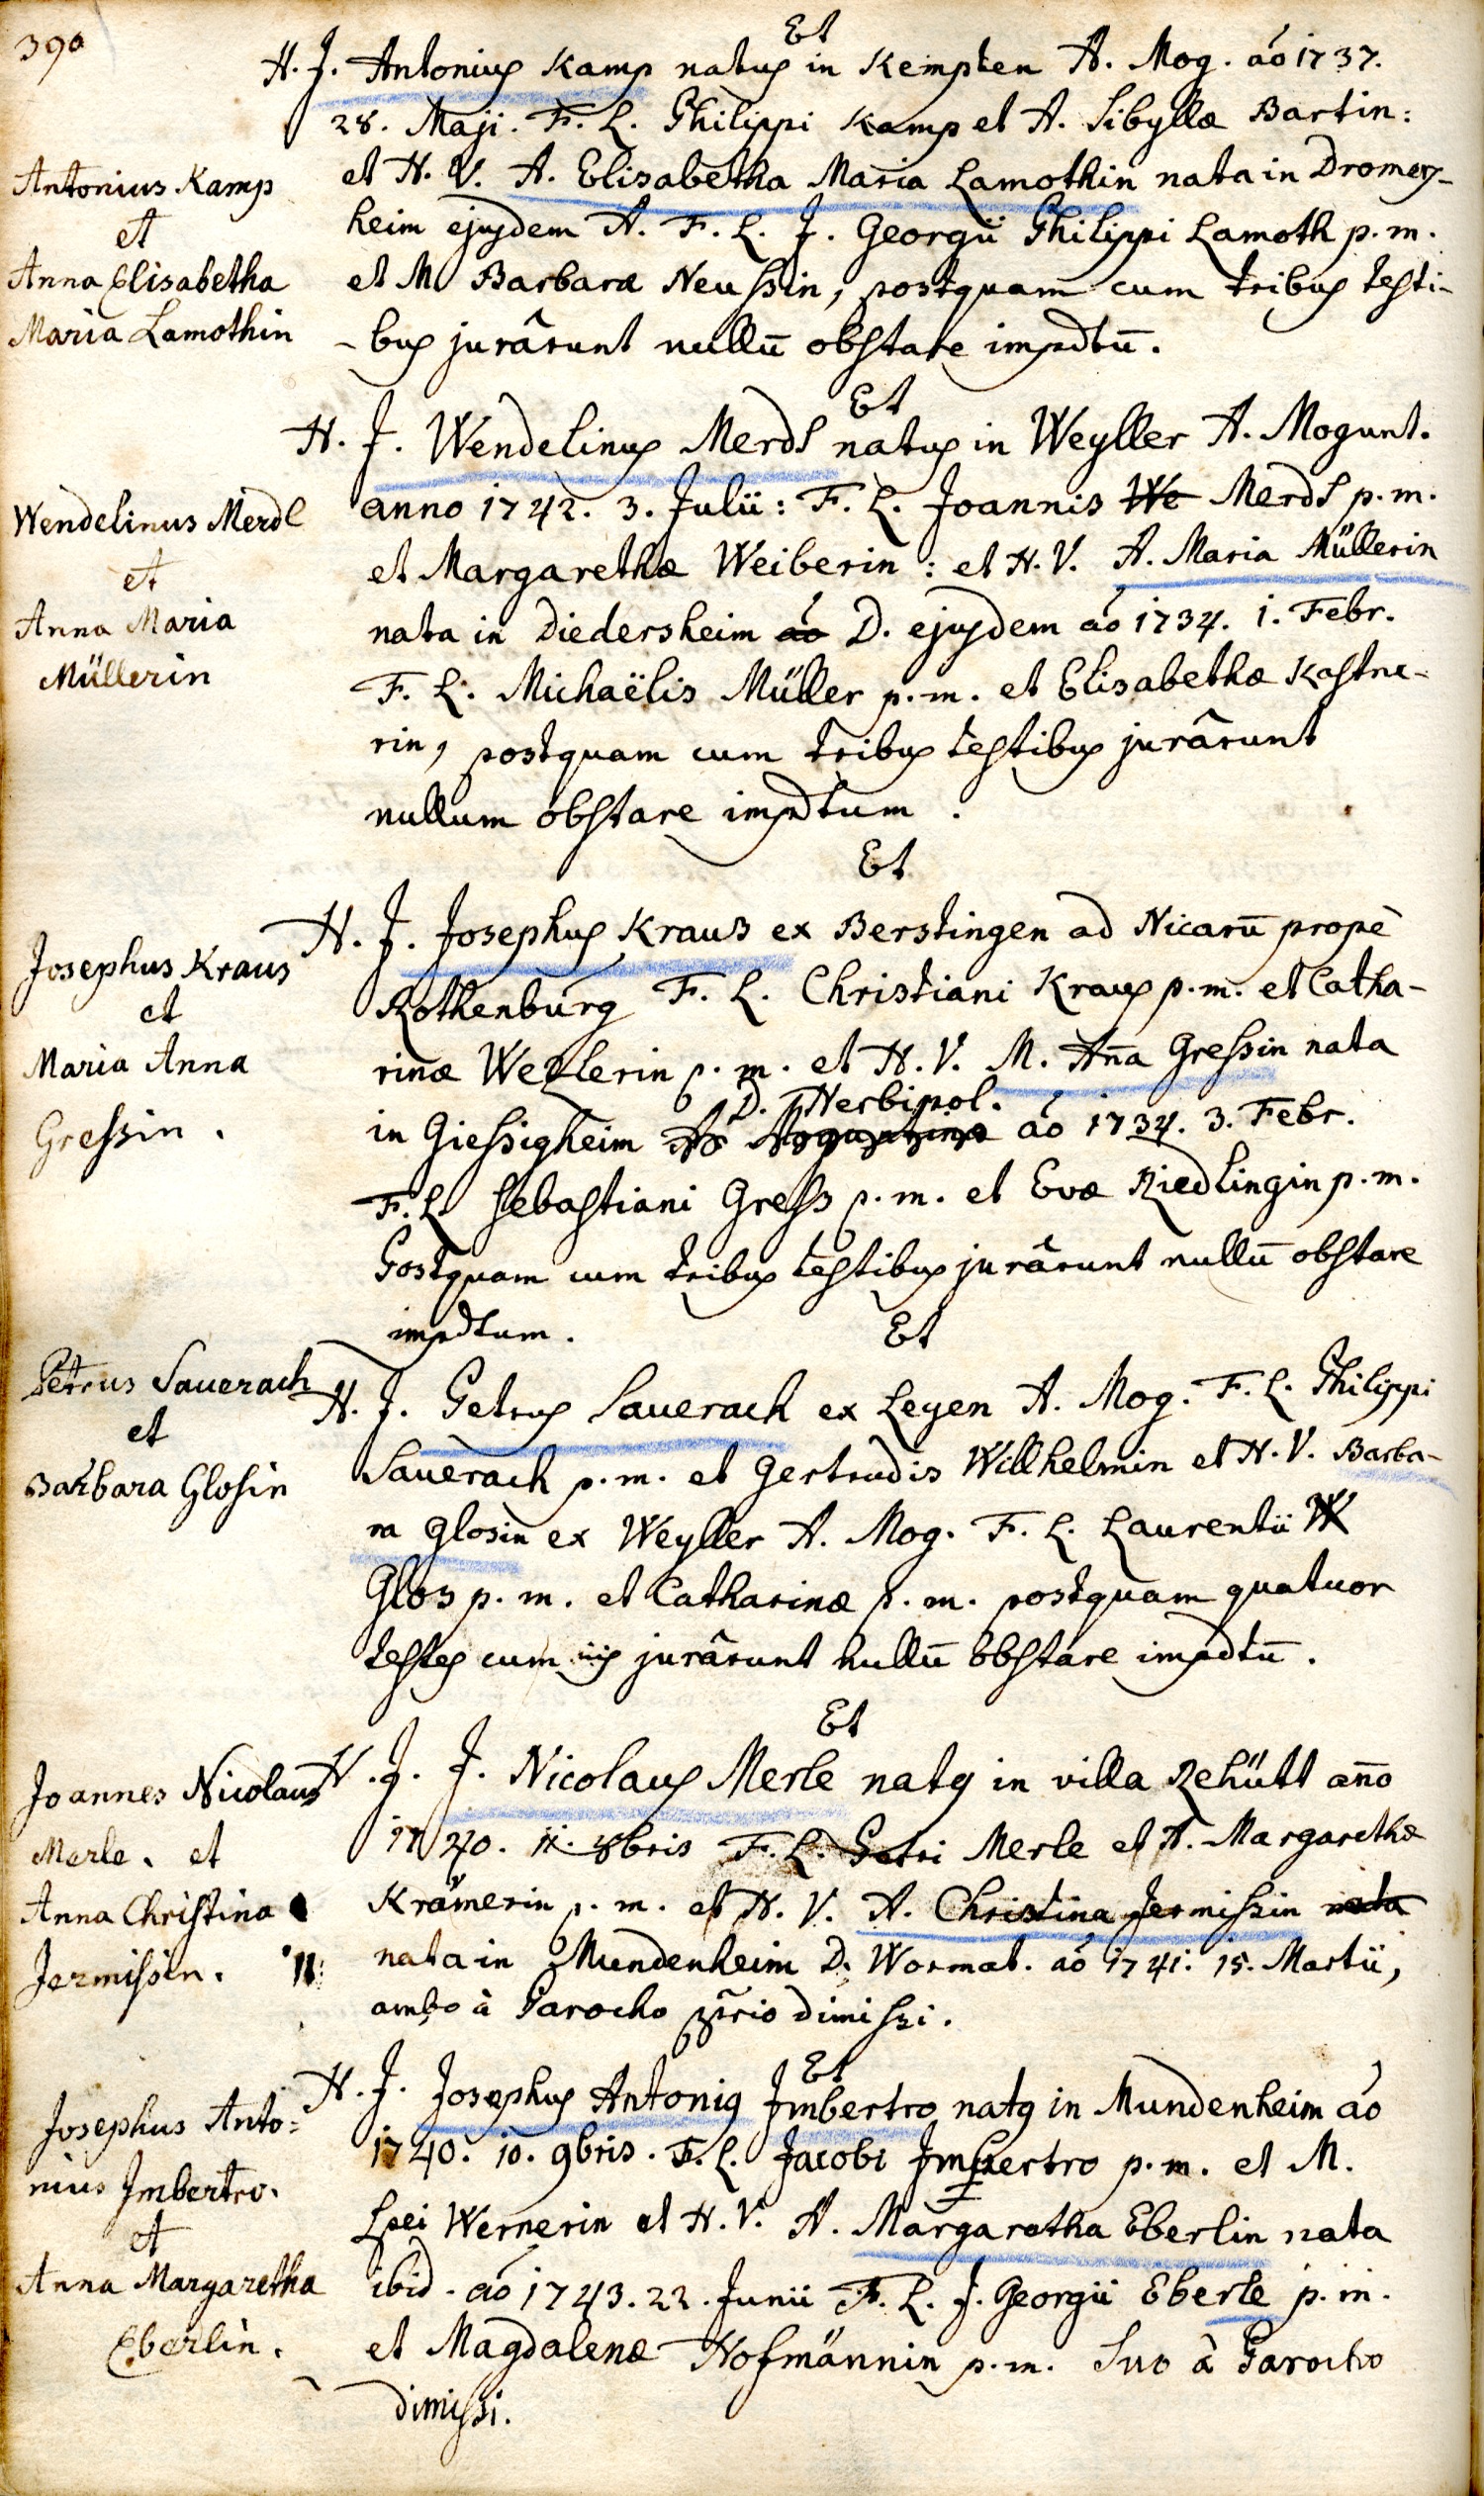 390
Et
H. J. Antonius Kamp natus in Kempten A. Mog. aō 1737.
28. Maji. F. L. Philippi Kamp et A. Sibyllæ Bartin:
Antonius Kamp
et
Anna Elisabetha
Maria Lamothin
et H. V. A. Elisabetha Maria Lamothin nata in Dromers-
heim ejusdem A. F. L. J. Georgii Philippi Lamoth p. m.
et M Barbaræ Neussin, postquam cum tribus testi-
-bus jurârunt nullū obstare impdtū.
Et
H. J. Wendelinus Merdl natus in Weyller A. Mogunt.
Wendelinus Merdl
et
Anna Maria
Müllerin
anno 1742. 3. Julii: F. L. Joannis We Merdl p. m.
et Margarethæ Weiberin: et H. V. A. Maria Müllerin
nata in Diedersheim aō D. ejusdem aō 1734. 1. Febr.
F. L. Michaëlis Müller p. m. et Elisabethæ Kastne-
rin, postquam cum tribus testibus jurârunt
nullum obstare impdtum.
Et
H. J. Josephus Kraus ex Berstingen ad Nicarū propè
Josephus Kraus
et
Maria Anna
Gressin.
Rothenburg F. L. Christiani Kraus p. m. et Catha-
rinæ Wezlerin p. m. et H. V. M. Aña Gressin nata
D. Herbipol.
in Giessigheim Aō Moguntinæ aō 1734. 3. Febr.
F. L Sebastiani Gress p. m. et Evæ Riedlingin p. m.
Postquam cum tribus testibus jurârunt nullū obstare
impdtum.
Et
Petrus Sauerach
et
Barbara Glosin
H. J. Petrus Sauerach ex Leyen A. Mog. F. L. Philippi
Sauerach p. m. et Gertrudis Willhelmin et H. V. Barba-
ra Glosin ex Weyller A. Mog. F. L. Laurentii W
Glos p. m. et Catharinæ p. m. postquam quatuor
testes cum iis jurârunt nullū obstare impdtū.
Et
Joannes Nicolaus
Merle. et
Anna Christina
Jermissin.
H. J. J. Nicolaus Merle natq in villa Rehütt año
1740. 11. 8bris F. L. Petri Merle et A. Margarethæ
Krämerin p. m. et H. V. A. Christina Jermissin nata
nata in Mundenheim D. Wormat. aō 1741. 15. Martii,
ambo à Parocho ppr̄io dimissi.
Et
Josephus Anto=
nius Imbertro.
et
Anna Margaretha
Eberlin.
H. J. Josephus Antoniq Imbertro natq in Mundenheim aō
1740. 10. 9bris. F. L. Jacobi Imbertro p. m. et M.
Wernerin et H. V. A. Margaretha Eberlin nata
ibid. aō 1743. 22. Junii F. L. J. Georgii Eberle p. m.
et Magdalenæ Hofmännin p. m. Suo à Parocho
dimissi.